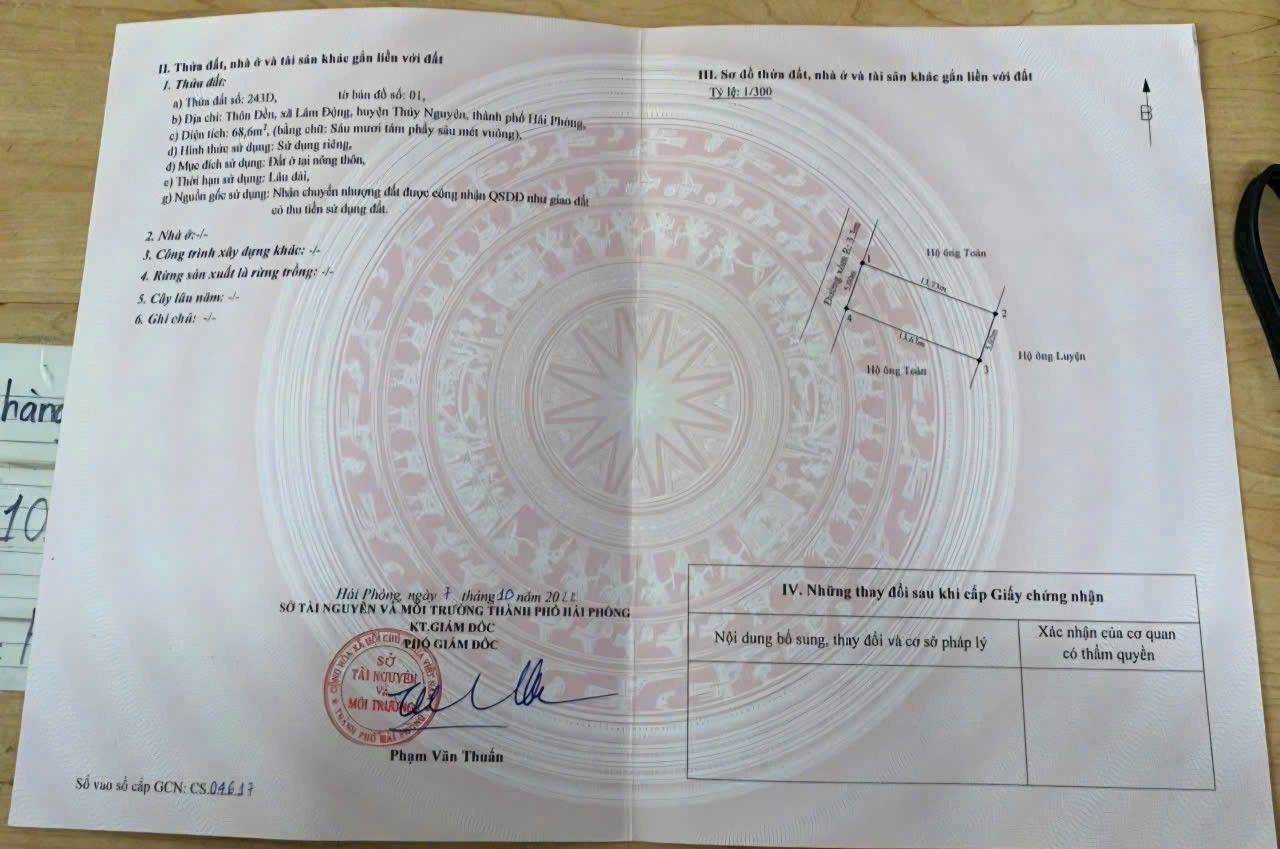 II. Thửa đất, nhà ở và tài sản khác gắn liền với đất
1. Thửa đất:
a) Thửa đất số: 243D, tờ bản đồ số: 01,
b) Địa chỉ: Thôn Đền, xã Lâm Động, huyện Thủy Nguyên, thành phố Hải Phòng,
c) Diện tích: 68,6m², (bằng chữ: Sáu mươi tám phẩy sáu mét vuông),
d) Hình thức sử dụng: Sử dụng riêng,
đ) Mục đích sử dụng: Đất ở tại nông thôn,
e) Thời hạn sử dụng: Lâu dài,
g) Nguồn gốc sử dụng: Nhận chuyển nhượng đất được công nhận QSDĐ như giao đất
có thu tiền sử dụng đất.
2. Nhà ở:-/-
3. Công trình xây dựng khác: -/-
4. Rừng sản xuất là rừng trồng: -/-
5. Cây lâu năm: -/-
6. Ghi chú: -/-
Hải Phòng, ngày 7 tháng 10 năm 2022
SỞ TÀI NGUYÊN VÀ MÔI TRƯỜNG THÀNH PHỐ HẢI PHÒNG
KT.GIÁM ĐỐC
PHÓ GIÁM ĐỐC
SỞ
TÀI NGUYÊN
VÀ
MÔI TRƯỜNG
THÀNH PHỐ HẢI PHÒNG
Phạm Văn Thuấn
Số vào sổ cấp GCN: CS.04617
III. Sơ đồ thửa đất, nhà ở và tài sản khác gắn liền với đất
Tỷ lệ: 1/300
B
Đường xóm R: 3.3m
1
Hộ ông Toàn
5.00m
13.73m
2
4
13.67m
3
Hộ ông Toàn
Hộ ông Luyện
IV. Những thay đổi sau khi cấp Giấy chứng nhận
Nội dung bổ sung, thay đổi và cơ sở pháp lý
Xác nhận của cơ quan
có thẩm quyền
hàng
10